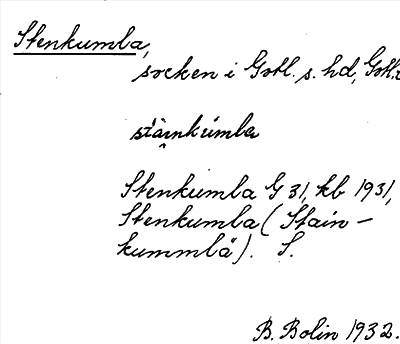 Stenkumba,
socken i Gotl. s. hd, Gotl.
stainkúmba
Stenkumba G 31, kb 1931,
Stenkumba (Stain-
kummbä). S.
B. Bolin 1932.